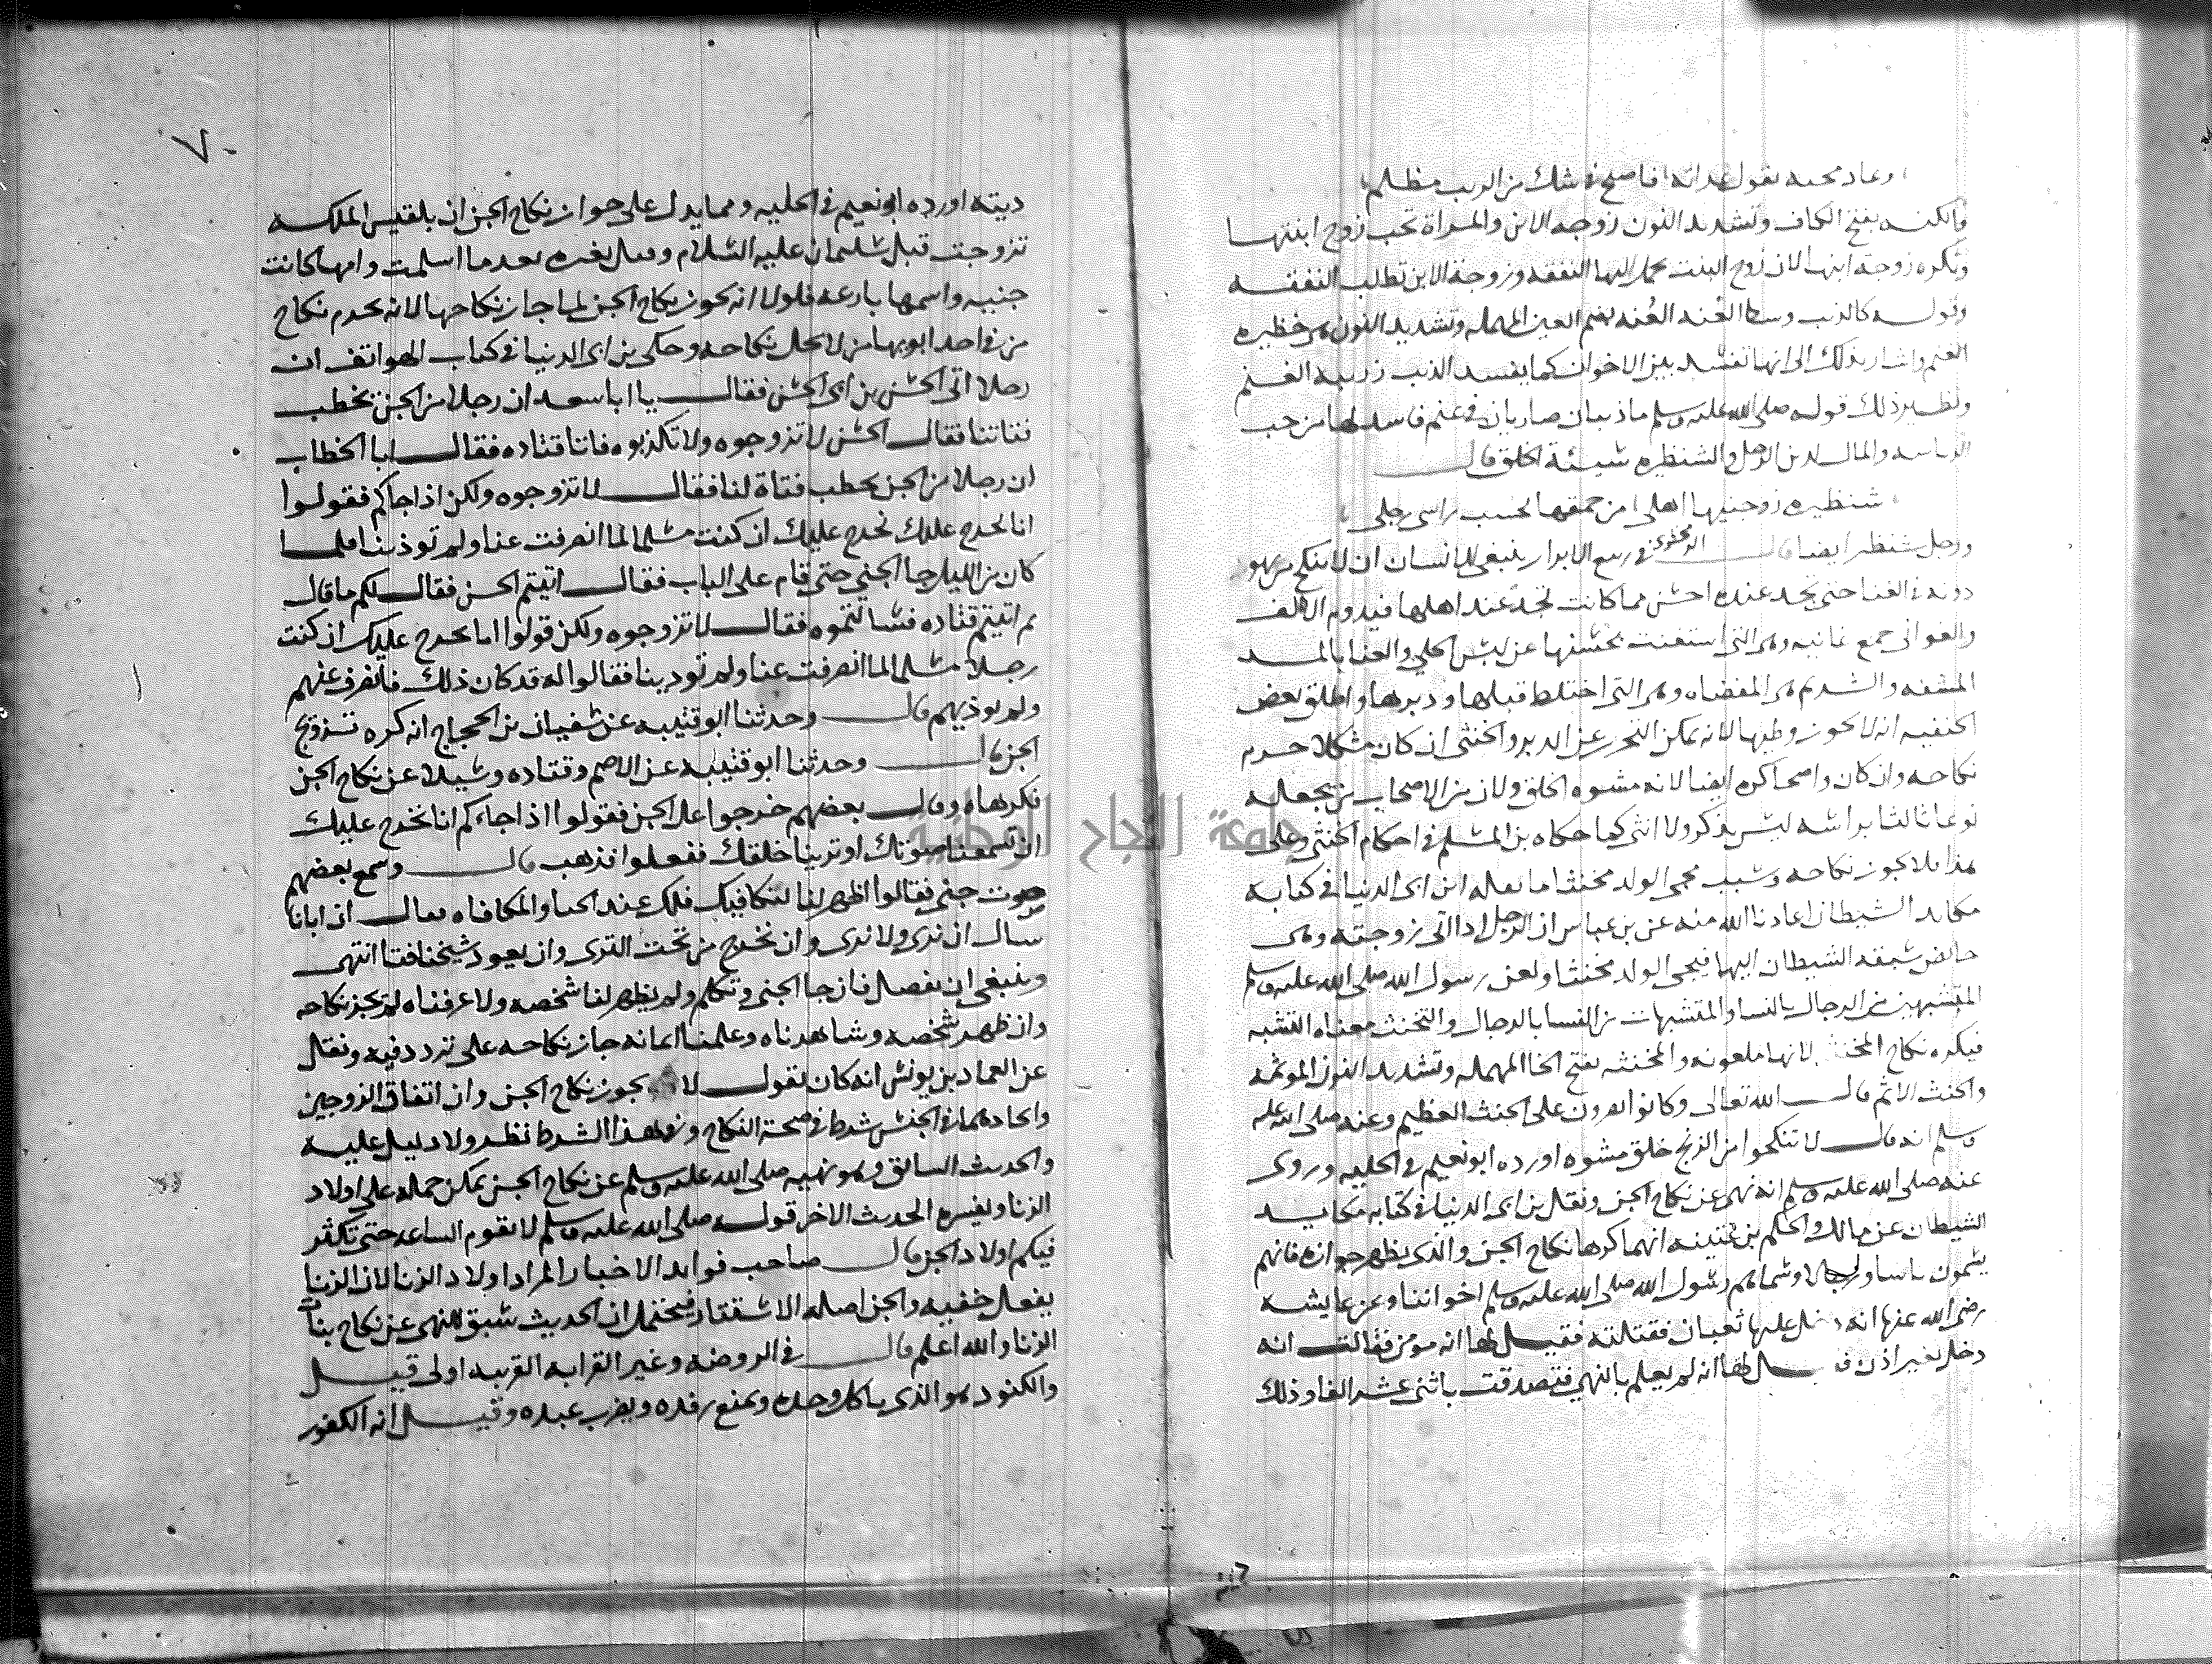 وعاد محبه يقول عداته فاصبح في شك من الريب مظلم
والكنه بفتح الكاف وتشديد النون زوجه الابن والمراة تحب زوج ابنتها
وتكره زوجة ابنها لان زوج البنت يحمل اليها النفقه وزوجة الابن تطلب النفقه
وقوله كالذيب وسط العنه العُنه بضم العين المهمله وتشديد النون هى حظيره
الغنم واشار بذلك الى انها تفسد بين الاخوان كما يفسد الذيب زريبه الغنم
ونظير ذلك قوله صلى الله عليه وسلم ماذيبان ضاريان في غنم فاسد لها من حب
الرياسه والمال لدين الرجل والشنظره سيئة الخلق قال
شنظيره زوجنيها اهلى من حمقها تحسب راسى رجلى
ورجل شنظير ايضا قال الزمخشرى في ربيع الابرار ينبغى للانسان ان لا ينكح من هو
دونه في الغنا حتى يجد عنده احسن مما كانت تجد عند اهلها فيدوم الالف
والغوانى جمع غانيه وهى التى استغنت بحسنها عن لبس الحلي والعنا بالمد
المشقه والشريم هى المفضاه وهى التى اختلط قبلها ودبرها واطلق بعض
الحنفيه انه لا يجوز وطيها لانه يمكن التحرز عن الدبر والخنثى ان كان مشكلا حرم
نكاحه وان كان واضحا كره ايضا لانه مشوه الخلق ولان من الاصحاب من يجعله
نوعا ثالثا براسه ليس بذكر ولا انثى كما حكاه بن المسلم في احكام الخنثى وعلى
هذا فلا يجوز نكاحه وسبب مجى الولد مخنثا ما نقله ابن ابى الدنيا في كتابه
مكايد الشيطان اعاذنا الله منه عن بن عباس ان الرجل اذا اتى زوجته وهى
حايض سبقه الشيطان اليها فيجى الولد مخنثا ولعن رسول الله صلى الله عليه وسلم
المتشبهين من الرجال بالنسا والمتشبهات من النسا بالرجال والتخنث معناه التشبه
فيكره نكاح المخنث لانها ملعونه والمخنثه بفتح الحا المهمله وتشديد النون الموثمه
والحنث الاثم قال الله تعالى وكانوا يصرون على الحنث العظيم وعنه صلى الله عليه
وسلم انه قال لا تنكحوا من الزنج خلق مشوه اورده ابونعيم في الحليه وروى
عنه صلى الله عليه وسلم انه نهى عن نكاح الجن ونقل بن ابى الدنيا في كتابه مكايد
الشيطان عن مالك والحكم بن عتيبه انهما كرها نكاح الجن والذى يظهر جوازه فانهم
يسمون ناسا ورجالا وسماهم رسول الله صلى الله عليه وسلم اخواننا وعن عايشه
رضى الله عنها انه دخل عليها ثعبان فقتلته فقيل لها انه مومن فقالت انه
دخل بغير اذن فقيل لها انه لم يعلم بالنهى فتصدقت باثنى عشر الفا وذلك
٧٠
ديته اورده ابونعيم في الحليه ومما يدل على جواز نكاح الجن ان بلقيس الملكه
تزوجت قبل سليمان عليه السلام وقيل بغيره بعد ما اسلمت وامها كانت
جنيه واسمها بارعه فلولا انه يجوز نكاح الجن لما جاز نكاحها لانه يحرم نكاح
من في احد ابويها من لا يحل نكاحه وحكى بن ابى الدنيا في كتاب الهواتف ان
رجلا اتى الحسن بن ابى الحسن فقال يا ابا سعد ان رجلا من الجن يخطب
فتاتنا فقال الحسن لا تزوجوه ولا تكذبوه فاتا قتاده فقال ابا الخطاب
ان رجلا من الجن يخطب فتاة لنا فقال لا تزوجوه ولكن اذا جاكم فقولوا
انا نحرج عليك نحرج عليك ان كنت مسلما لما انصرفت عنا ولم توذينا فلما
كان من الليل جا الجني حتى قام على الباب فقال اتيتم الحسن فقال لكم ما قال
ثم اتيتم قتاده فسالتموه فقال لا تزوجوه ولكن قولوا انا نحرج عليك ان كنت
رجلا مسلما لما انصرفت عنا ولم توذينا فقالوا له قد كان ذلك فانصرف عنهم
ولم يوذيهم قال وحدثنا ابوقتيبه عن سفيان بن الحجاج انه كره تزويج
الجن قال وحدثنا ابوقتيبه عن الاصم وقتاده وسيلا عن نكاح الجن
فكرهاه وقال بعضهم خرجوا على الجن فقولوا اذا جاءكم انا نحرج عليك
ان تسمعنا صوتك او ترينا خلقك ففعلوا فذهب قال وسمع بعضهم
صوت جنى فقالوا اظهر لنا لنكافيك فلك عندنا الحبا والمكافاه فقال ان ابانا
سال ان نرى ولا نرى وان نخرج من تحت الثرى وان يعود شيخنا فتا انتهى
وينبغى ان يفصل فان جا الجنى وتكلم ولم يظهر لنا شخصه ولا عرفناه لم يجز نكاحه
وان ظهر شخصه وشاهدناه وعلمنا ايمانه جاز نكاحه على تردد فيه ونقل
عن العماد بن يونس انه كان يقول لا يجوز نكاح الجن وان اتفاق الزوجين
واتحادهما في الجنس شرط في صحة النكاح وفي هذا الشرط نظر ولا دليل عليه
والحديث السابق وهو نهيه صلى الله عليه وسلم عن نكاح الجن يمكن حمله على اولاد
الزنا ويفسره الحديث الاخر قوله صلى الله عليه وسلم لا تقوم الساعه حتى تكثر
فيكم اولاد الجن قال صاحب فوايد الاخبار المراد اولاد الزنا لان الزنا
يفعل خفيه والجن اصله الاستتار فيحتمل ان الحديث سبق للنهى عن نكاح بنات
الزنا والله اعلم قال في الروضه وغير القرابه القريبه اولى قيل
والكنود هو الذى ياكل وحده ويمنع رفده ويضرب عبده وقيل انه الكفور
جامعة النجاح الوطنية